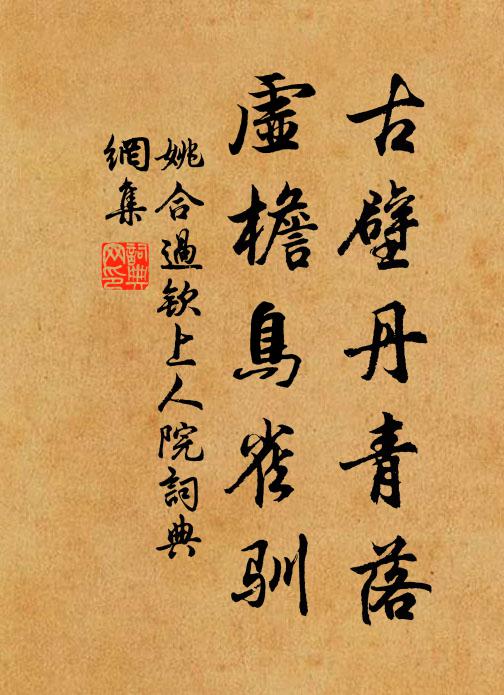 古壁丹青落
虛檐鳥雀馴
姚合過欽上人院詞典
網集
詞典
网印